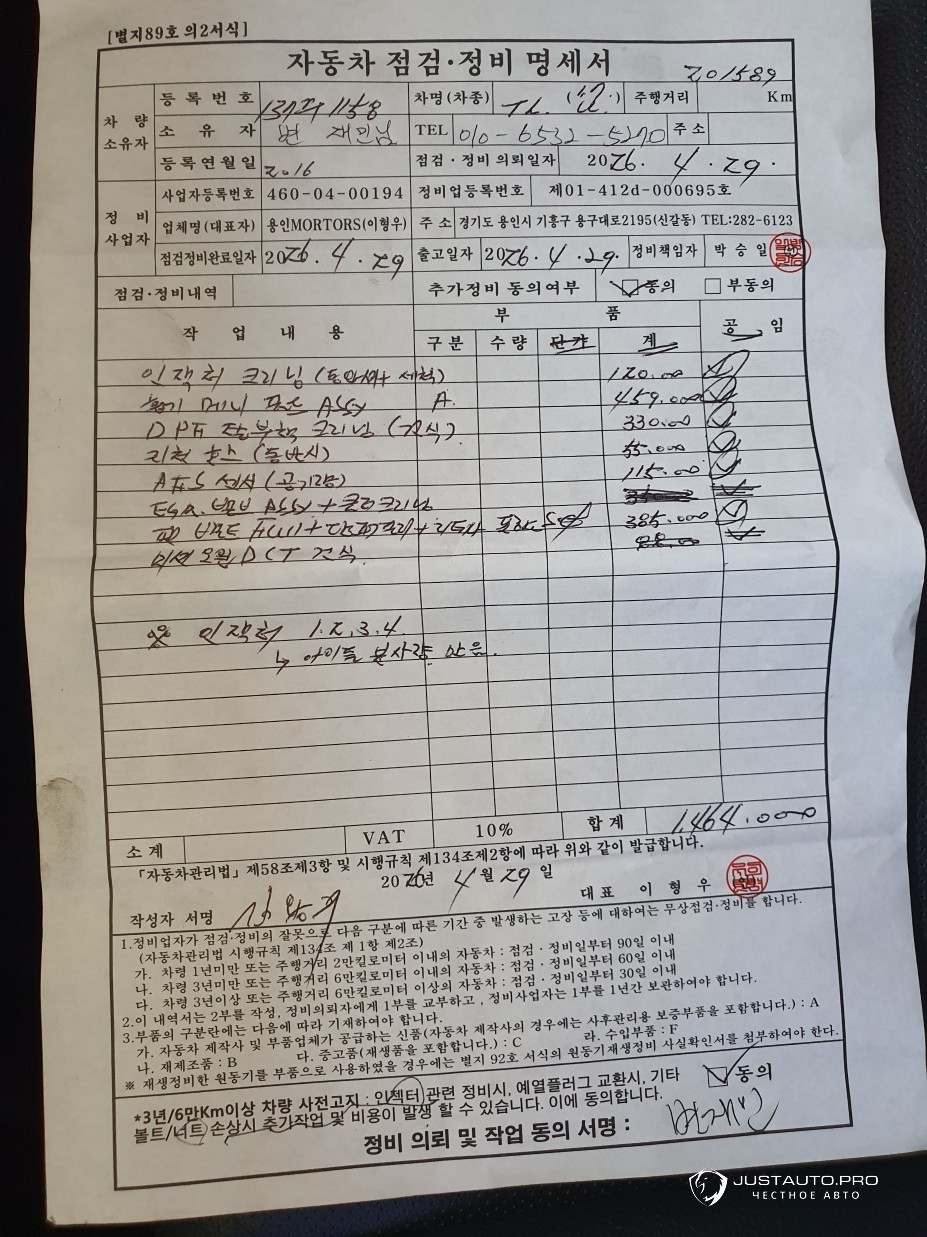 [별지89호 의2서식]
자동차 점검·정비 명세서
201589
차 량 소유자
등 록 번 호 1158
차명(차종) TL
주행거리 Km
소 유 자 변 재민님
TEL 010-6532-5270
주 소
등록연월일 2016
점검·정비 의뢰일자 2026. 4. 29.
정 비 사업자
사업자등록번호 460-04-00194
정비업등록번호 제01-412d-000695호
업체명(대표자) 용인MORTORS(이형우)
주 소 경기도 용인시 기흥구 용구대로2195(신갈동) TEL:282-6123
점검정비완료일자 2026. 4. 29
출고일자 2026. 4. 29.
정비책임자 박 승 일
점검·정비내역
추가정비 동의여부 동의 부동의
작 업 내 용 부 품 공 임
구분 수량 단가 계
인젝터 크리닝 (동와셔+세척) 120.00
흡기 메니 폴드 ASSY A. 459.000
DPF 탈부착 크리닝 (건식). 330.00
리턴 호스 (동반시) 55.000
AFS 센서 (공기량) 115.00
EGR 밸브 ASSY + 쿨러크리닝
385.000
미션오일 DCT 건식. 88.00
※ 인젝터 1.2.3.4
↳ 아이들 분사량 안음.
소 계 VAT 10% 합 계 1,464.000
「자동차관리법」제58조제3항 및 시행규칙 제134조제2항에 따라 위와 같이 발급합니다.
2026년 4월 29일
작성자 서명 대 표 이 형 우
1.정비업자가 점검·정비의 잘못으로 다음 구분에 따른 기간 중 발생하는 고장 등에 대하여는 무상점검·정비를 합니다.
(자동차관리법 시행규칙 제134조 제 1항 제2조)
가. 차령 1년미만 또는 주행거리 2만킬로미터 이내의 자동차 : 점검·정비일부터 90일 이내
나. 차령 3년미만 또는 주행거리 6만킬로미터 이내의 자동차 : 점검·정비일부터 60일 이내
다. 차령 3년이상 또는 주행거리 6만킬로미터 이상의 자동차 : 점검·정비일부터 30일 이내
2.이 내역서는 2부를 작성, 정비의뢰자에게 1부를 교부하고, 정비사업자는 1부를 1년간 보관하여야 합니다.
3.부품의 구분란에는 다음에 따라 기재하여야 합니다.
가. 자동차 제작사 및 부품업체가 공급하는 신품(자동차 제작사의 경우에는 사후관리용 보증부품을 포함합니다.) : A
나. 재제조품 : B 다. 중고품(재생품을 포함합니다.) : C 라. 수입부품 : F
※ 재생정비한 원동기를 부품으로 사용하였을 경우에는 별지 92호 서식의 원동기재생정비 사실확인서를 첨부하여야 한다.
*3년/6만Km이상 차량 사전고지 : 인젝터 관련 정비시, 예열플러그 교환시, 기타
볼트/너트 손상시 추가작업 및 비용이 발생 할 수 있습니다. 이에 동의합니다. 동의
정비 의뢰 및 작업 동의 서명 : 변재민
JUSTAUTO.PRO
ЧЕСТНОЕ АВТО